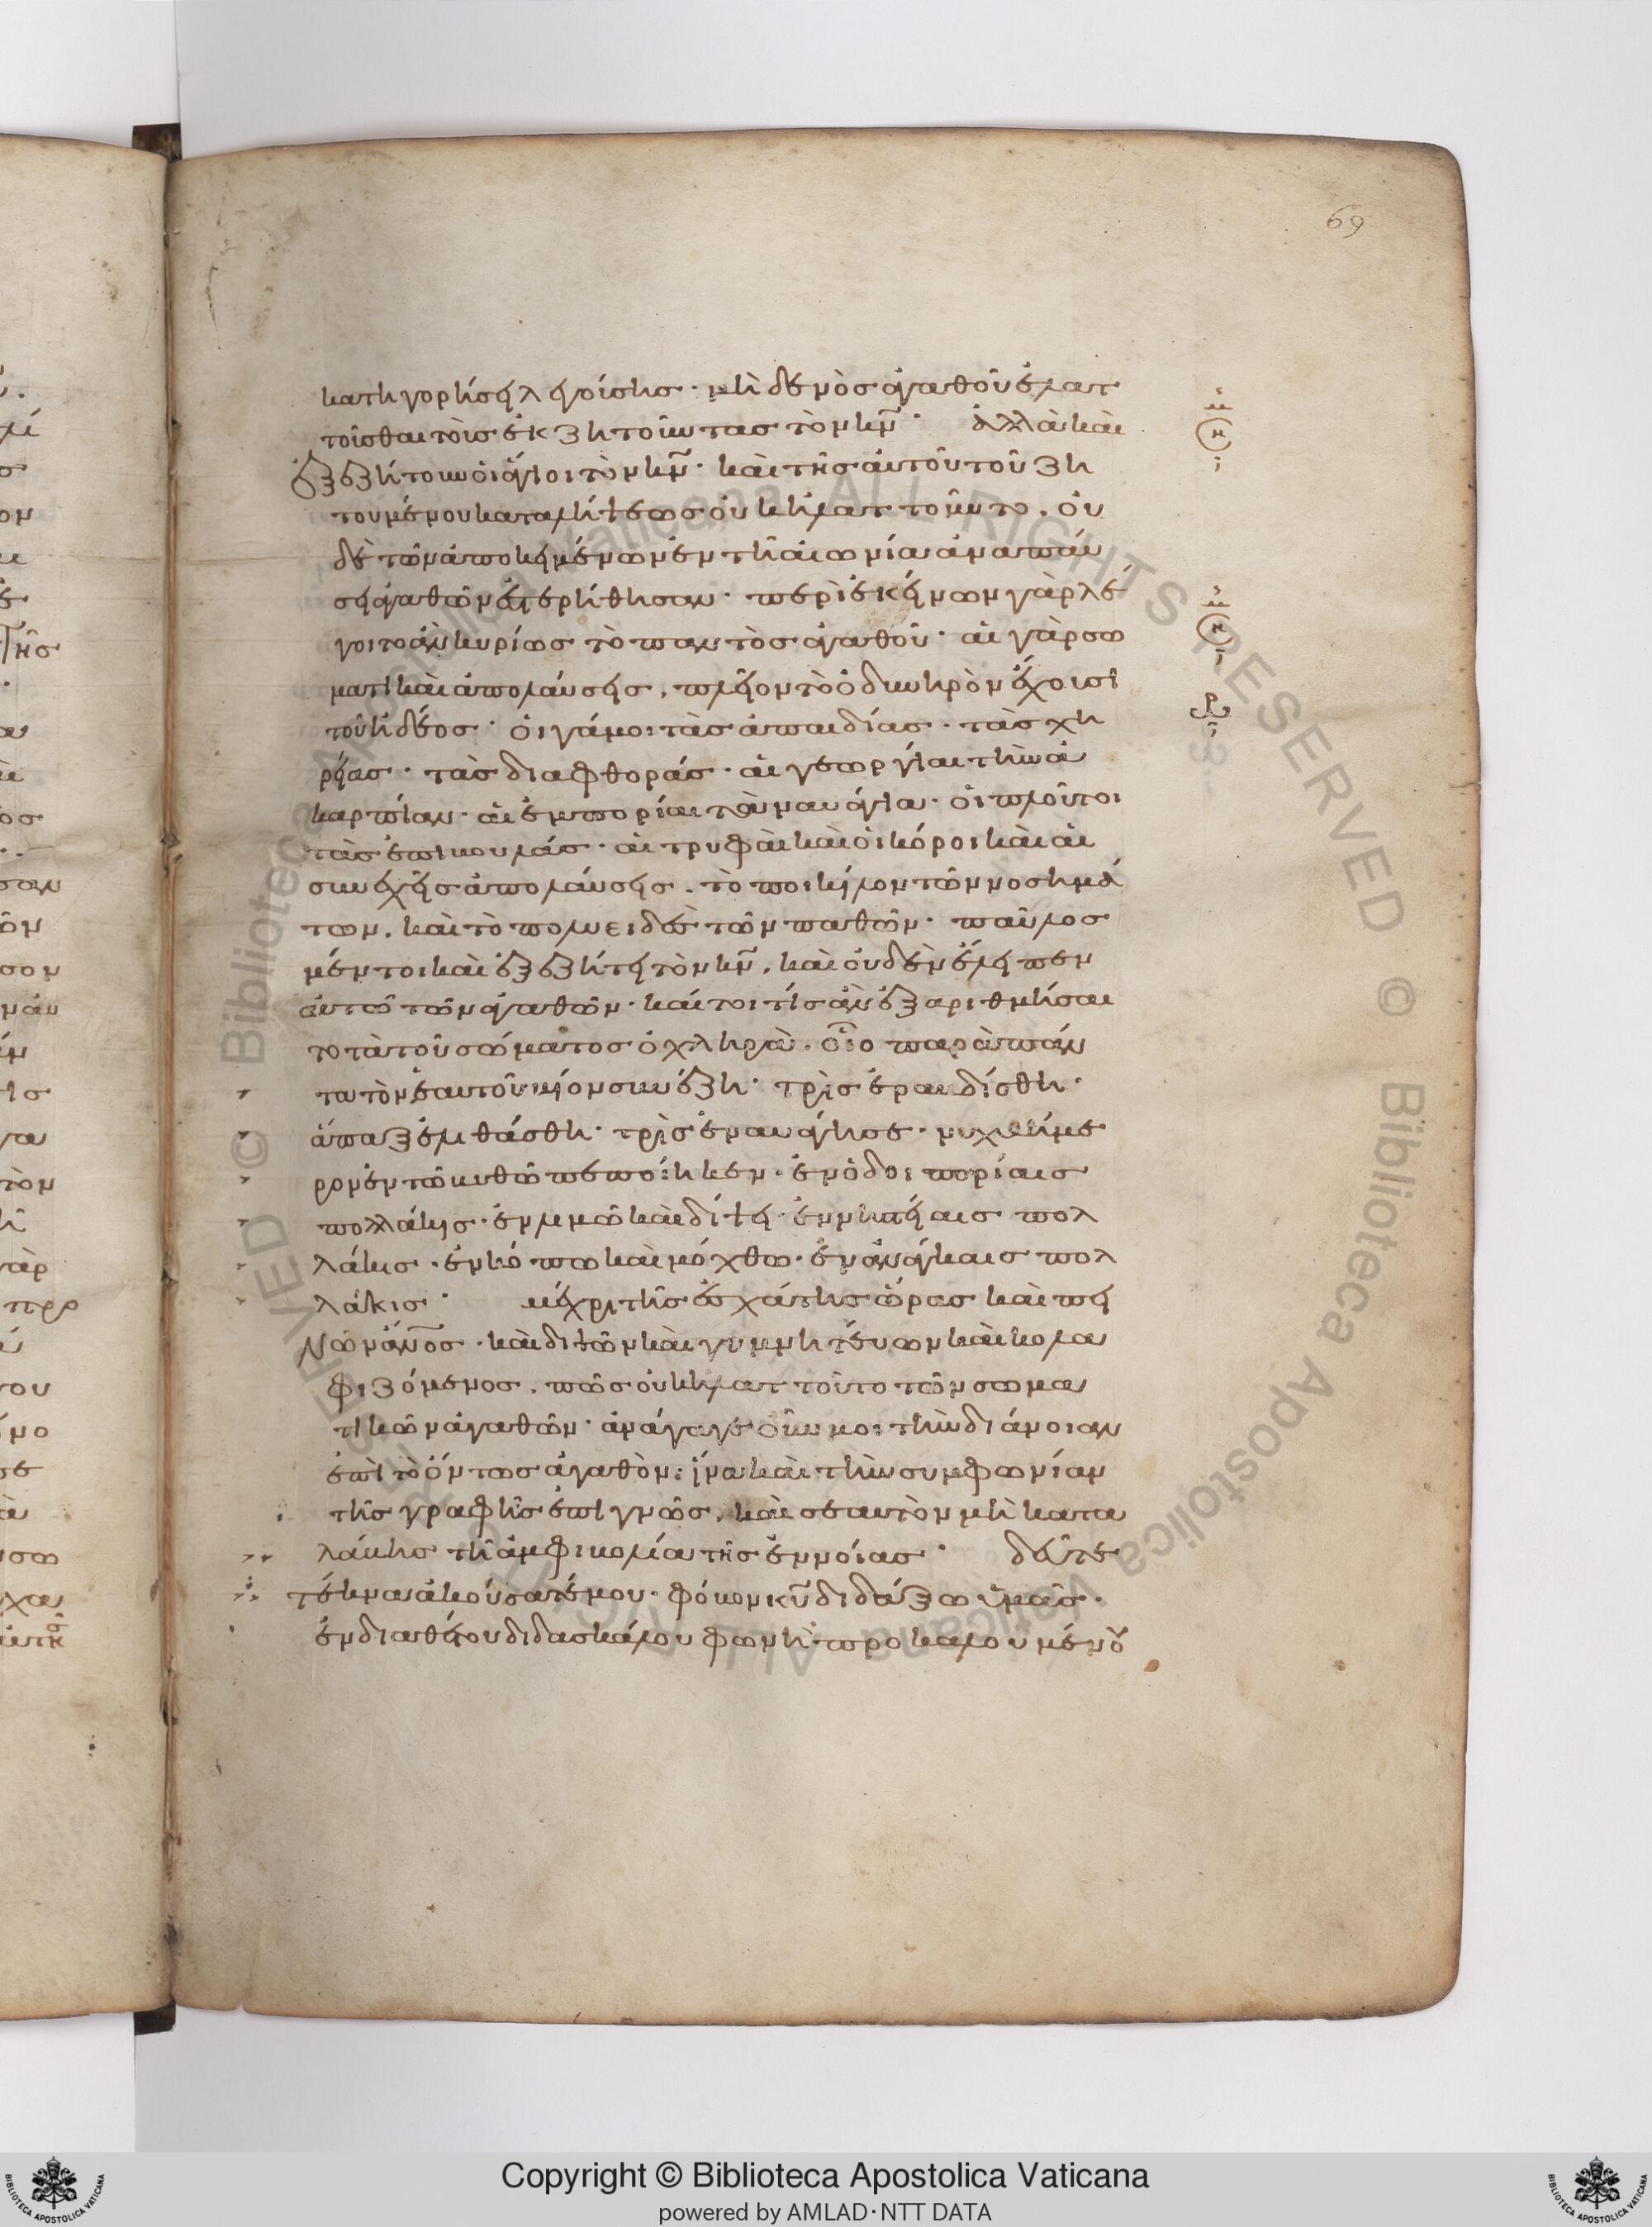 69
κατηγορήσει λεγούσης· μὴ δενὸς ἀγαθοῦ ἐλατ
τοῦσθαι τοὺς ἐκζητοῦντας τὸν κν̅· ἀλλὰ καὶ
ἐξεζήτουν οἱ ἅγιοι τὸν κν̅· καὶ τῆς αὐτοῦ τοῦ ζη
τουμένου καταλήψεως οὐκ ἠλαττοῦντο, οὐ
δὲ τῶν ἀποκειμένων ἐν τῇ αἰωνία ἀναπαύ
σει ἀγαθῶν ἐστερήθησαν· περὶ ἐκείνων γὰρ λέ
γοιτο ἂν κυρίως τὸ παντὸς ἀγαθοῦ· αἱ γὰρ σω
ματικαὶ ἀπολαύσεις, πλεῖον τὸ ὀδυνηρὸν ἔχουσι
τοῦ ἡδέος· οἱ γάμοι τὰς ἀπαιδίας· τὰς χη
ρείας· τὰς διαφθοράς· αἱ γεωργίαι τὴν ἀ
καρπίαν· αἱ ἐμπορίαι τὰ ναυάγια· οἱ πλοῦτοι
τὰς ἐπιβουλάς· αἱ τρυφαὶ καὶ οἱ κόροι καὶ αἱ
συνεχεῖς ἀπολαύσεις, τὸ ποικίλον τῶν νοσημά
των, καὶ τὸ πολυειδὲς τῶν παθῶν· παῦλος
μέντοι καὶ ἐξεζήτει τὸν κν̅, καὶ οὐδὲν ἔλειπεν
αὐτῶ τῶν ἀγαθῶν· καί τοι τίς ἂν ἐξαριθμήσαι
το τὰ τοῦ σώματος ὀχληρὰ· οἷς ὁ παρὰ πάν
τα τὸν ἑαυτοῦ βίον συνέζη· τρὶς ἐραβδίσθη·
ἅπαξ ἐλιθάσθη· τρὶς ἐναυάγησε· νυχθήμε
ρον ἐν τῶ βυθῶ πεποίηκεν· ἐν ὁδοιπορίαις
πολλάκις· ἐν λιμῶ καὶ δίψει· ἐν νηστείαις πολ
λάκις· ἐν κόπω καὶ μόχθω· ἐν ἀνάγκαις πολ
λάκις· μέχρι τῆς ἐσχάτης ὥρας καὶ πει
νῶν ἄν̅ος· καὶ διψῶν καὶ γυμνητεύων καὶ κολα
φιζόμενος, πῶς οὐκ ἠλαττοῦτο τῶν σωμα
τικῶν ἀγαθῶν· ἀνάγαγε οὖν μοι τὴν διάνοιαν
ἐπὶ τὸ ὄντως ἀγαθὸν· ἵνα καὶ τὴν συμφωνίαν
τῆς γραφῆς ἐπιγνῶς, καὶ σεαυτὸν μὴ κατα
λάβης τῆ ἀμφιβολία τῆς ἐννοίας· δεῦτε
τέκνα ἀκούσατέ μου· φόβον κυ̅ διδάξω ὑμᾶς·
ἐνδιαθέτου διδασκάλου φωνὴ προκαλουμένου
Copyright © Biblioteca Apostolica Vaticana
powered by AMLAD·NTT DATA